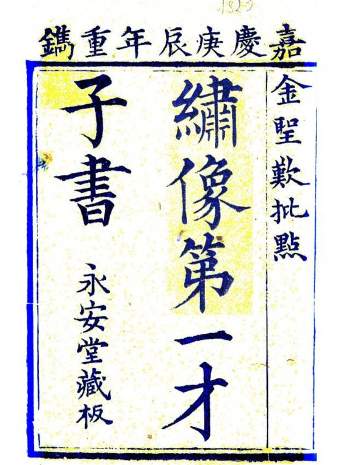 嘉慶庚辰年重鐫
金聖歎批點
繡像第一才
子書
永安堂藏板